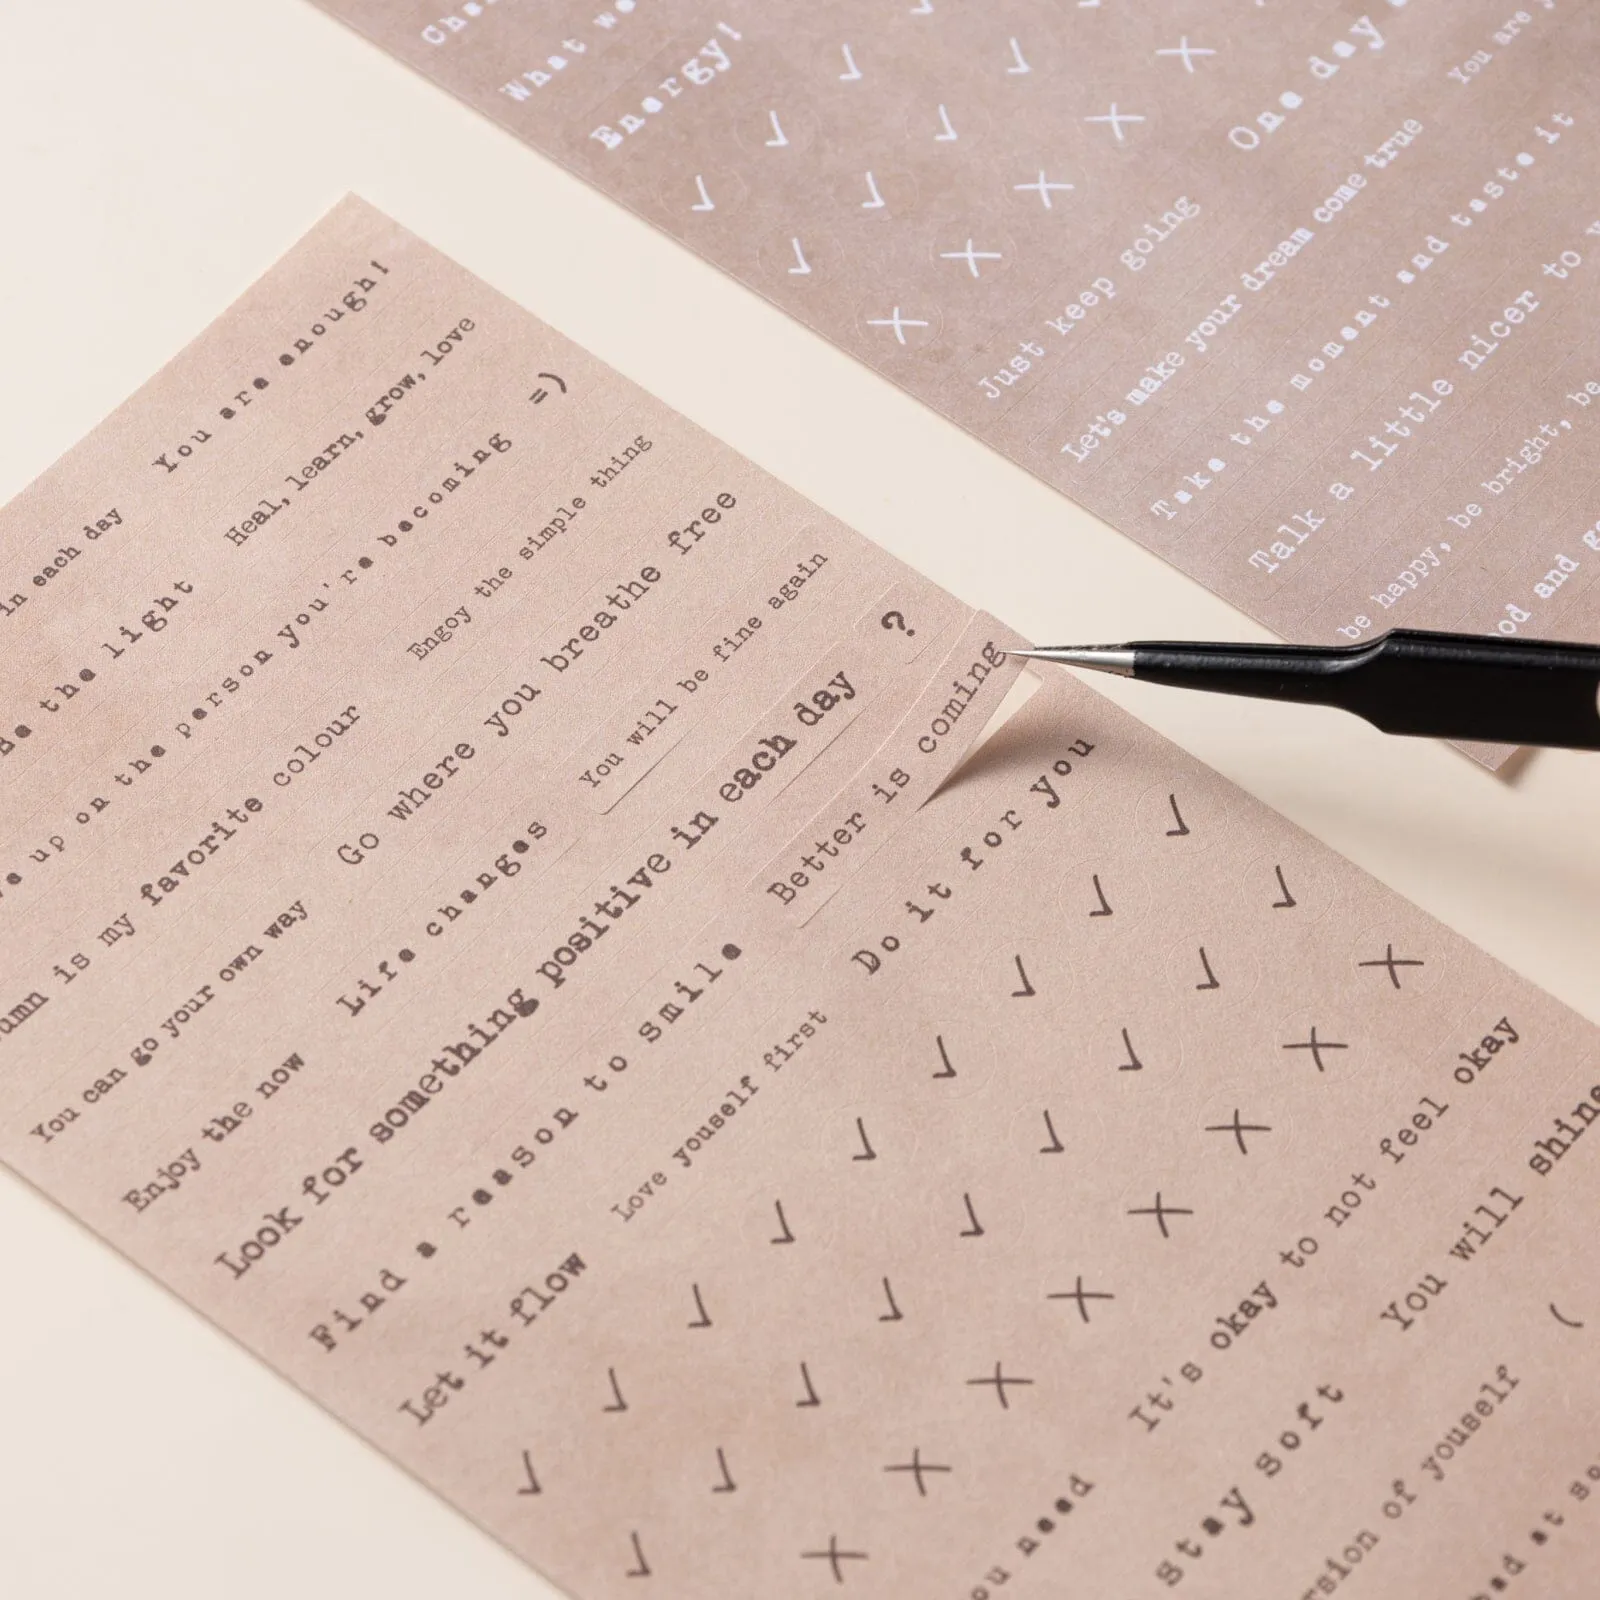 in each day
You are enough!
Heal, learn, grow, love
Be the light
up on the person you're becoming =)
Engoy the simple thing
is my favorite colour
Go where you breathe free
You will be fine again
You can go your own way
Life changes
?
Enjoy the now
Look for something positive in each day
Better is coming
Find a reason to smile
Do it for you
Let it flow
Love youself first
It's okay to not feel okay
You will shine
(
need
Stay soft
of youself
at
What we
Energy!
One day
You are
Just keep going
Let's make your dream come true
Take the moment and taste it
Talk a little nicer to
be happy, be bright, be
and